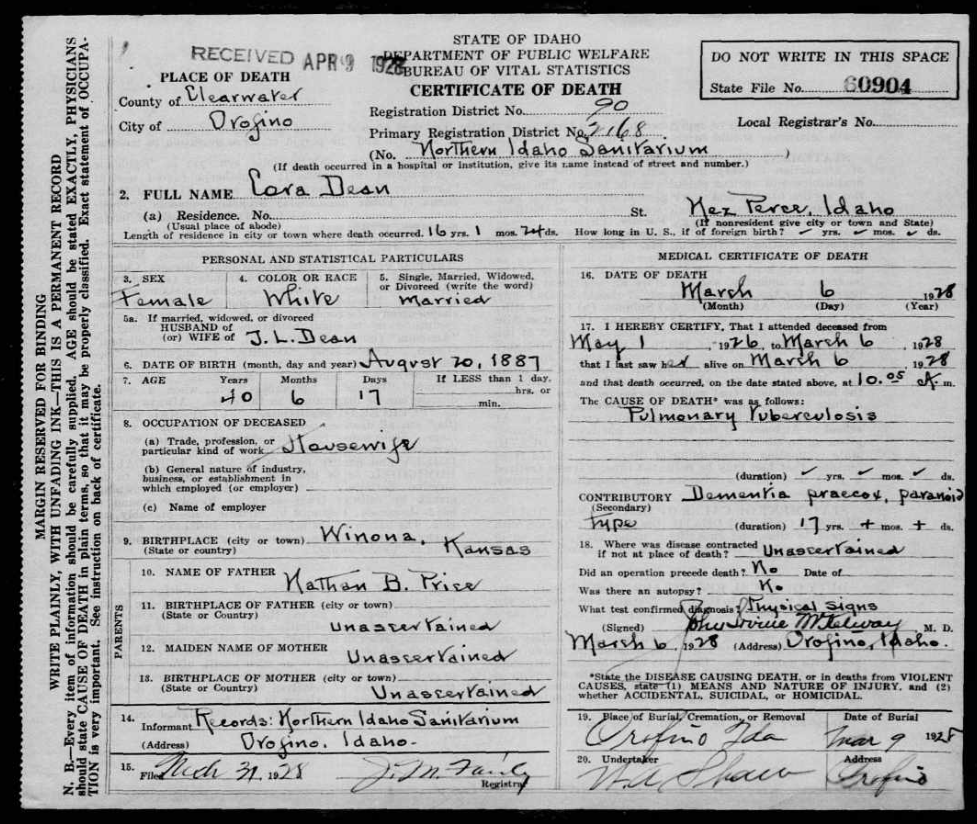 RECEIVED APR 9 1928
STATE OF IDAHO
DEPARTMENT OF PUBLIC WELFARE
BUREAU OF VITAL STATISTICS
CERTIFICATE OF DEATH
DO NOT WRITE IN THIS SPACE
State File No. 60904
PLACE OF DEATH
County of Clearwater
City of Orofino
Registration District No. 90
Primary Registration District No. 2168
Local Registrar's No.
(No. Northern Idaho Sanitarium )
(If death occurred in a hospital or institution, give its name instead of street and number.)
2. FULL NAME Cora Dean
(a) Residence. No. St. Nez Perce, Idaho
(Usual place of abode) (If nonresident give city or town and State)
Length of residence in city or town where death occurred. 16 yrs. 1 mos. 24 ds. How long in U. S., if of foreign birth? yrs. mos. ds.
PERSONAL AND STATISTICAL PARTICULARS
3. SEX
Female
4. COLOR OR RACE
White
5. Single, Married, Widowed, or Divorced (write the word)
Married
5a. If married, widowed, or divorced
HUSBAND of
(or) WIFE of J. L. Dean
6. DATE OF BIRTH (month, day and year) August 20, 1887
7. AGE Years Months Days If LESS than 1 day,
40 6 17 hrs. or min.
8. OCCUPATION OF DECEASED
(a) Trade, profession, or particular kind of work Housewife
(b) General nature of industry, business, or establishment in which employed (or employer)
(c) Name of employer
9. BIRTHPLACE (city or town) Winona, Kansas
(State or country)
PARENTS
10. NAME OF FATHER Nathan B. Price
11. BIRTHPLACE OF FATHER (city or town)
(State or Country) Unascertained
12. MAIDEN NAME OF MOTHER Unascertained
13. BIRTHPLACE OF MOTHER (city or town)
(State or Country) Unascertained
14. Informant Records: Northern Idaho Sanitarium
(Address) Orofino, Idaho.
15. Filed Mch 31, 1928
Registrar
MEDICAL CERTIFICATE OF DEATH
16. DATE OF DEATH
March 6 1928
(Month) (Day) (Year)
17. I HEREBY CERTIFY, That I attended deceased from
May 1, 1926, to March 6 1928
that I last saw her alive on March 6 1928
and that death occurred, on the date stated above, at 10.05 A. m.
The CAUSE OF DEATH* was as follows:
Pulmonary Tuberculosis
(duration) yrs. mos. ds.
CONTRIBUTORY Dementia praecox, paranoid
(Secondary)
type (duration) 17 yrs. + mos. + ds.
18. Where was disease contracted
if not at place of death? Unascertained
Did an operation precede death? No Date of
Was there an autopsy? No
What test confirmed diagnosis? Physical signs
(Signed) M. D.
March 6 1928 (Address) Orofino, Idaho.
*State the DISEASE CAUSING DEATH, or in deaths from VIOLENT
CAUSES, state (1) MEANS AND NATURE OF INJURY, and (2)
whether ACCIDENTAL, SUICIDAL, or HOMICIDAL.
19. Place of Burial, Cremation, or Removal Date of Burial
Orofino Ida Mar 9 1928
20. Undertaker Address
Orofino
MARGIN RESERVED FOR BINDING
WRITE PLAINLY, WITH UNFADING INK—THIS IS A PERMANENT RECORD
N. B.—Every item of information should be carefully supplied. AGE should be stated EXACTLY, PHYSICIANS
should state CAUSE OF DEATH in plain terms, so that it may be properly classified. Exact statement of OCCUPA-
TION is very important. See instruction on back of certificate.